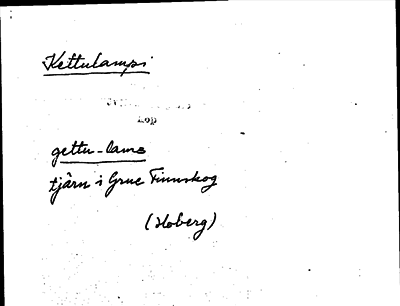 Kettulampi
Kop
gettu-lame
tjärn i Grue Finnskog
(Hoberg)